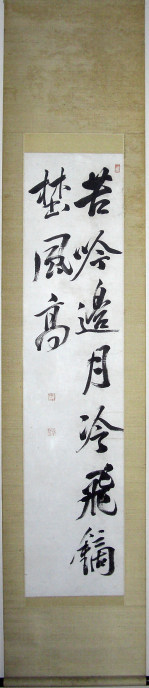 苦吟邊月冷飛鏑
埜風高